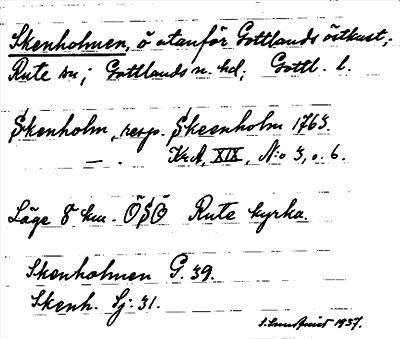 Skenholmen, ö utanför Gottlands östkust;
Rute sn; Gottlands n. hd; Gottl. l.
Skenholm, resp. Skeenholm 1763.
— . KrA, XIX, N:o 3, o. 6.
Läge 8 km. ÖSÖ Rute kyrka.
Skenholmen G. 39.
Skenh. Sj. 31.
S. Lundquist 1937.